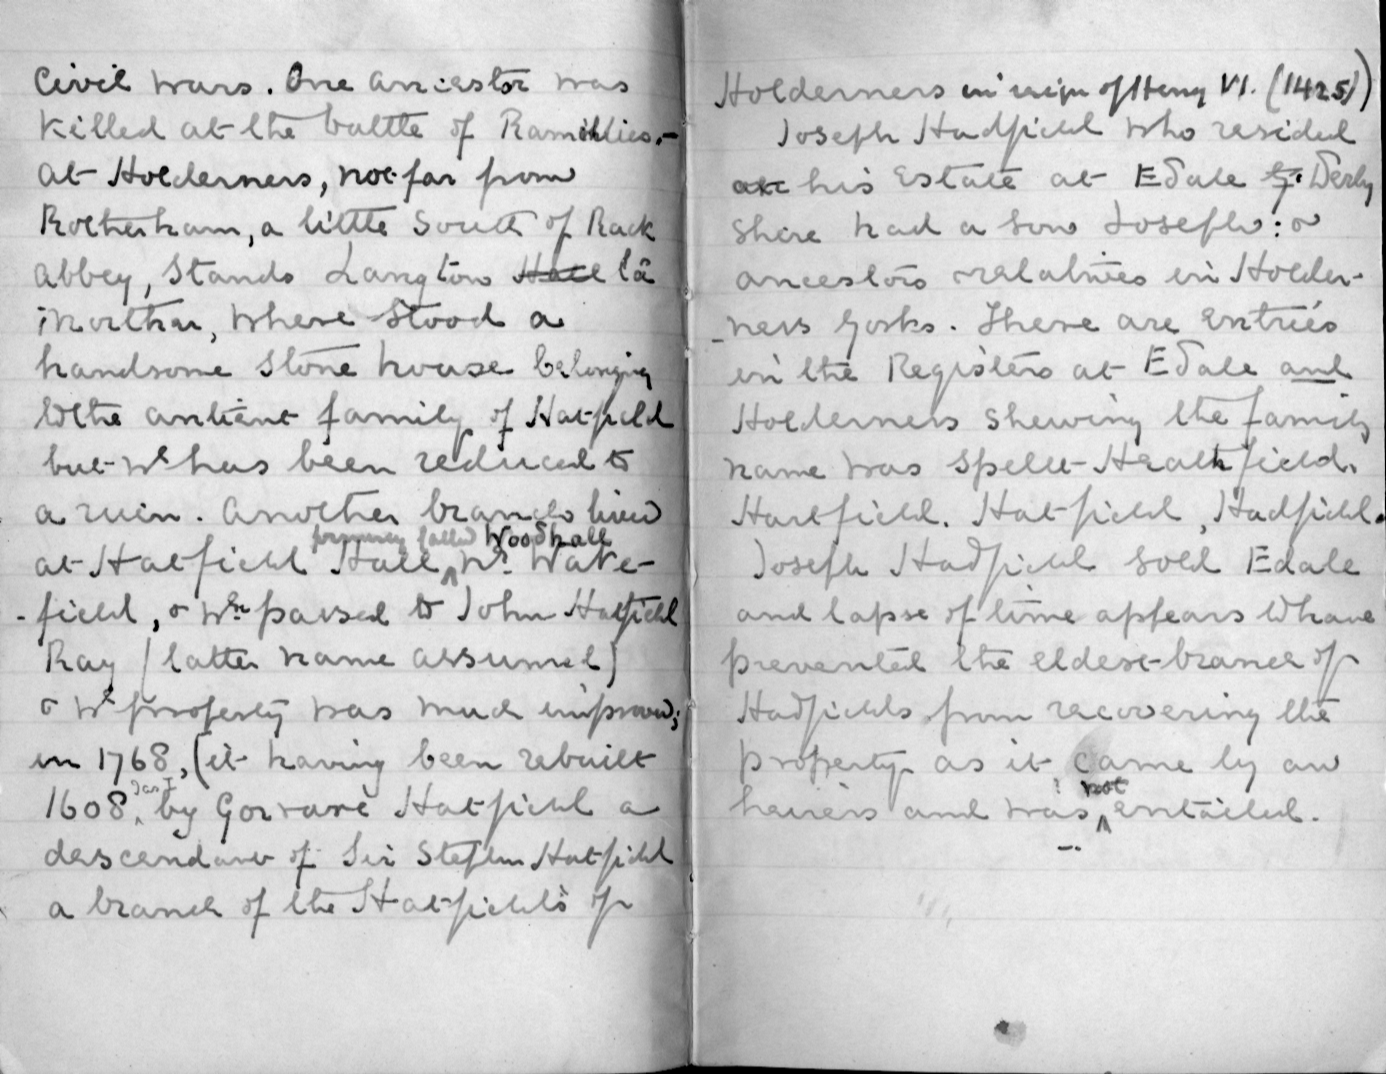 Civil wars. One ancestor was
killed at the battle of Ramillies.-
At Holderness, not far from
Rotherham, a little south of Rack
abbey, Stands Langton Hall la
Morthen, where stood a
handsome stone house belonging
to the antient family of Hatfield
but wh has been reduced to
a ruin. Another branch lived
formerly called Woodhall
at Hatfield Hall nr. Wake-
-field, & wh passed to John Hatfield
Kay (latter name assumed)
& wh property was much improved;
in 1768, (it having been rebuilt
Jas I
1608, by Gervase Hatfield a
descendant of Sir Stephen Hatfield
a branch of the Hatfield's of
Holderness in reign of Henry VI. (1425))
Joseph Hadfield who resided
his Estate at Edale Derby
shire had a son Joseph: &
ancestors relatives in Holder-
-ness Yorks. There are entries
in the Registers at Edale and
Holderness shewing the family
name was spellt Heathfield.
Hartfield. Hatfield, Hadfield.
Joseph Hadfield sold Edale
and lapse of time appears to have
prevented the eldest branch of
Hadfields from recovering the
property as it came by an
not
heiress and was entailed.